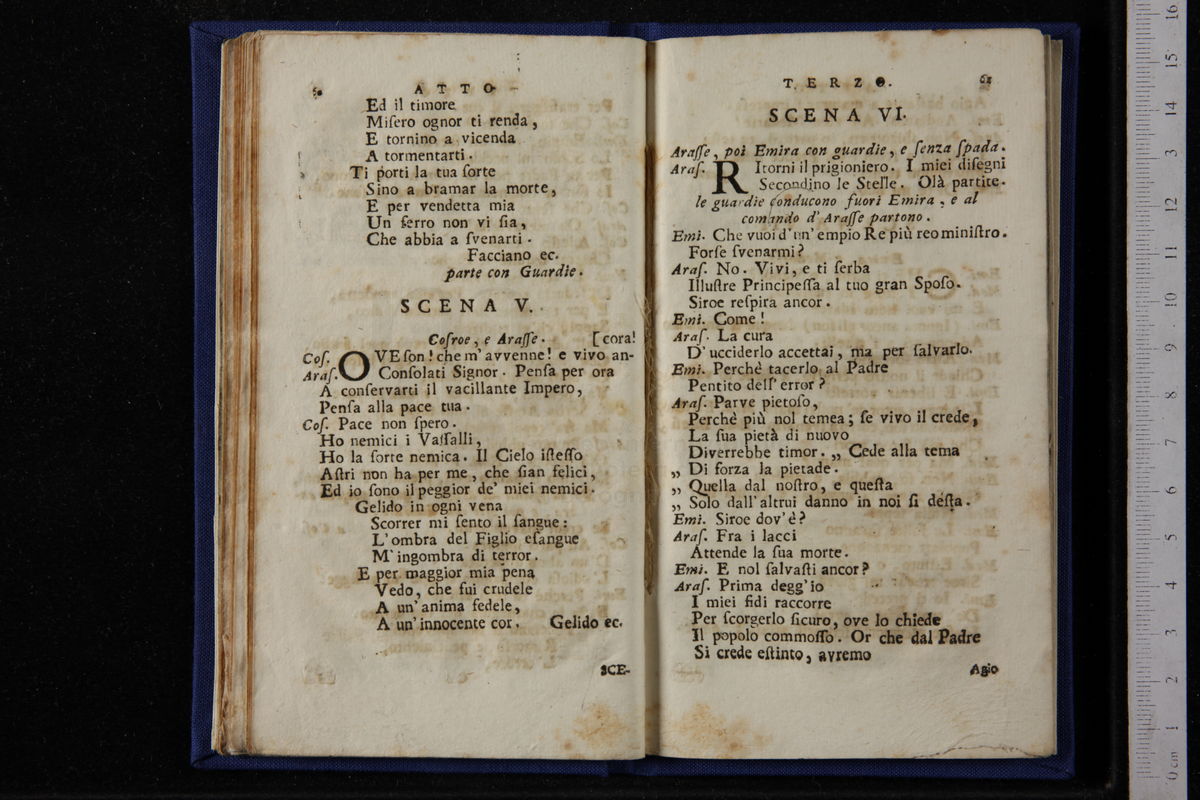 60 ATTO
Ed il timore
Miſero ognor ti renda,
E tornino a vicenda
A tormentarti.
Ti porti la tua ſorte
Sino a bramar la morte,
E per vendetta mia
Un ferro non vi ſia,
Che abbia a ſvenarti.
Facciano ec.
parte con Guardie.
SCENA V.
Coſroe, e Araſſe. [cora!
Coſ. OVE ſon! che m'avvenne! e vivo an-
Araſ. Conſolati Signor. Penſa per ora
A conſervarti il vacillante Impero,
Penſa alla pace tua.
Coſ. Pace non ſpero.
Ho nemici i Vaſſalli,
Ho la ſorte nemica. Il Cielo iſteſſo
Aſtri non ha per me, che ſian felici,
Ed io ſono il peggior de' miei nemici.
Gelido in ogni vena
Scorrer mi ſento il ſangue:
L'ombra del Figlio eſangue
M'ingombra di terror.
E per maggior mia pena
Vedo, che fui crudele
A un'anima fedele,
A un'innocente cor. Gelido ec.
SCE-
TERZO. 61
SCENA VI.
Araſſe, poi Emira con guardie, e ſenza ſpada.
Araſ. RItorni il prigioniero. I miei diſegni
Secondino le Stelle. Olà partite.
le guardie conducono fuori Emira, e al
comando d'Araſſe partono.
Emi. Che vuoi d'un'empio Re più reo miniſtro.
Forſe ſvenarmi?
Araſ. No. Vivi, e ti ſerba
Illuſtre Principeſſa al tuo gran Spoſo.
Siroe reſpira ancor.
Emi. Come!
Araſ. La cura
D'ucciderlo accettai, ma per ſalvarlo.
Emi. Perchè tacerlo al Padre
Pentito dell'error?
Araſ. Parve pietoſo,
Perchè più nol temea; ſe vivo il crede,
La ſua pietà di nuovo
Diverrebbe timor. „ Cede alla tema
„ Di forza la pietade.
„ Quella dal noſtro, e queſta
„ Solo dall'altrui danno in noi ſi deſta.
Emi. Siroe dov'è?
Araſ. Fra i lacci
Attende la ſua morte.
Emi. E nol ſalvaſti ancor?
Araſ. Prima degg'io
I miei fidi raccorre
Per ſcorgerlo ſicuro, ove lo chiede
Il popolo commoſſo. Or che dal Padre
Si crede eſtinto, avremo
Agio
0 cm 1 2 3 4 5 6 7 8 9 10 11 12 3 14 15 16